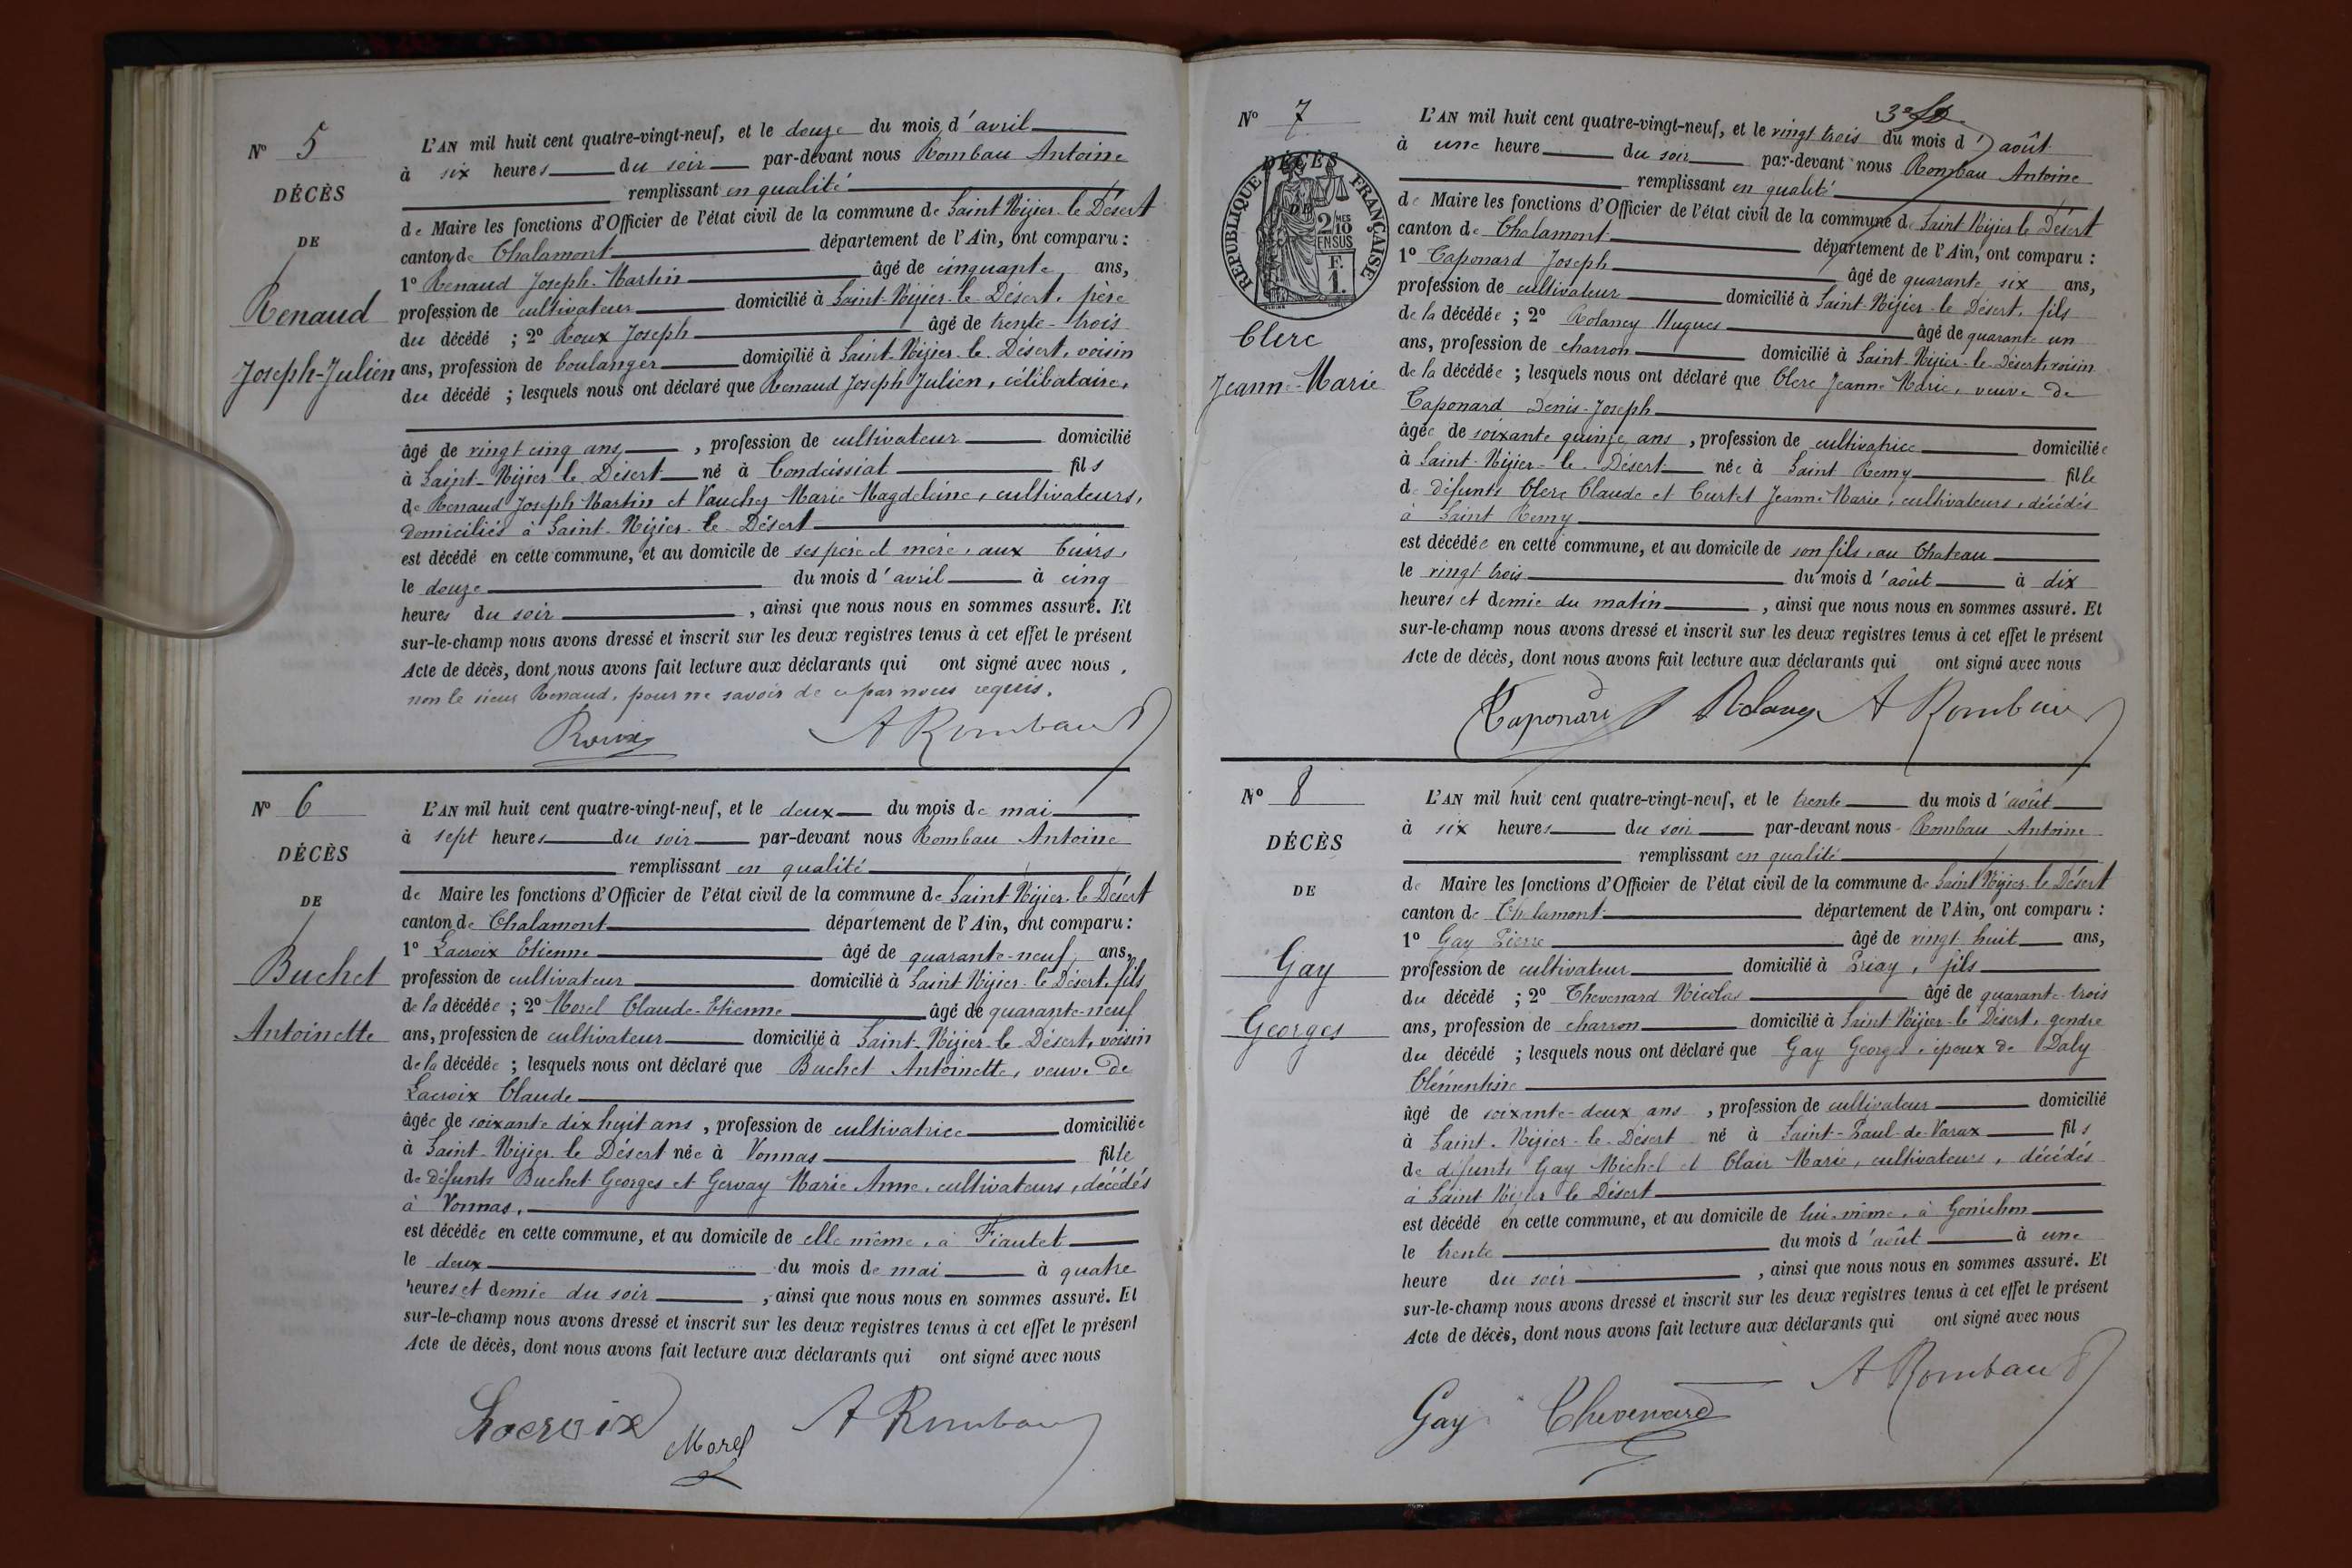 N° 5
DÉCÈS
DE
Renaud
Joseph-Julien
L'AN mil huit cent quatre-vingt-neuf, et le douze du mois d'avril
à six heures du soir par-devant nous Rombau Antoine
remplissant en qualité
de Maire les fonctions d'Officier de l'état civil de la commune de Saint Nizier le Désert
canton de Chalamont département de l'Ain, ont comparu :
1° Renaud Joseph-Martin âgé de cinquante ans,
profession de cultivateur domicilié à Saint-Nizier-le Désert, père
du décédé ; 2° Roux Joseph âgé de trente-trois
ans, profession de boulanger domicilié à Saint-Nizier-le Désert, voisin
du décédé ; lesquels nous ont déclaré que Renaud Joseph Julien, célibataire,
âgé de vingt cinq ans, profession de cultivateur domicilié
à Saint-Nizier le Désert né à Condeissiat fils
de Renaud Joseph Martin et Vaucher Marie Magdeleine, cultivateurs,
domiciliés à Saint-Nizier-le-Désert
est décédé en cette commune, et au domicile de ses père et mère, aux
le douze du mois d'avril à cinq
heures du soir, ainsi que nous nous en sommes assuré. Et
sur-le-champ nous avons dressé et inscrit sur les deux registres tenus à cet effet le présent
Acte de décès, dont nous avons fait lecture aux déclarants qui ont signé avec nous,
non le sieur Renaud, pour ne savoir de ce par nous requis.
Roux A Rombau
N° 6
DÉCÈS
DE
Buchet
Antoinette
L'AN mil huit cent quatre-vingt-neuf, et le deux du mois de mai
à sept heures du soir par-devant nous Rombau Antoine
remplissant en qualité
de Maire les fonctions d'Officier de l'état civil de la commune de Saint Nizier le Désert
canton de Chalamont département de l'Ain, ont comparu :
1° Lacroix Etienne âgé de quarante-neuf ans,
profession de cultivateur domicilié à Saint Nizier le Désert, fils
de la décédée ; 2° Morel Claude-Etienne âgé de quarante-neuf
ans, profession de cultivateur domicilié à Saint-Nizier-le-Désert, voisin
de la décédée ; lesquels nous ont déclaré que Buchet Antoinette, veuve de
Lacroix Claude
âgée de soixante dix huit ans, profession de cultivatrice domiciliée
à Saint-Nizier le Désert née à Vonnas fille
de défunts Buchet Georges et Gervay Marie Anne, cultivateurs, décédés
à Vonnas,
est décédée en cette commune, et au domicile de elle même, à Fiautet
le deux du mois de mai à quatre
heures et demie du soir, ainsi que nous nous en sommes assuré. Et
sur-le-champ nous avons dressé et inscrit sur les deux registres tenus à cet effet le présent
Acte de décès, dont nous avons fait lecture aux déclarants qui ont signé avec nous
Lacroix Morel A Rombau
3e
N° 7
DÉCÈS
DE
RÉPUBLIQUE FRANÇAISE
2 MES
10
EN SUS
F.
1.
Clerc
Jeanne-Marie
L'AN mil huit cent quatre-vingt-neuf, et le vingt trois du mois d'août
à une heure du soir par-devant nous Rombau Antoine
remplissant en qualité
de Maire les fonctions d'Officier de l'état civil de la commune de Saint Nizier le Désert
canton de Chalamont département de l'Ain, ont comparu :
1° Taponard Joseph âgé de quarante six ans,
profession de cultivateur domicilié à Saint-Nizier-le Désert, fils
de la décédée ; 2° Rolancy Hugues âgé de quarante un
ans, profession de charron domicilié à Saint-Nizier-le-Désert, voisin
de la décédée ; lesquels nous ont déclaré que Clerc Jeanne Marie, veuve de
Taponard Denis-Joseph
âgée de soixante quinze ans, profession de cultivatrice domiciliée
à Saint-Nizier-le-Désert née à Saint Remy fille
de défunts Clerc Claude et Curtet Jeanne Marie, cultivateurs, décédés
à Saint Remy
est décédée en cette commune, et au domicile de son fils, au Chateau
le vingt trois du mois d'août à dix
heures et demie du matin, ainsi que nous nous en sommes assuré. Et
sur-le-champ nous avons dressé et inscrit sur les deux registres tenus à cet effet le présent
Acte de décès, dont nous avons fait lecture aux déclarants qui ont signé avec nous
Taponard Rolancy A Rombau
N° 8
DÉCÈS
DE
Gay
Georges
L'AN mil huit cent quatre-vingt-neuf, et le trente du mois d'août
à six heures du soir par-devant nous Rombau Antoine
remplissant en qualité
de Maire les fonctions d'Officier de l'état civil de la commune de Saint Nizier le Désert
canton de Chlamont département de l'Ain, ont comparu :
1° Gay Pierre âgé de vingt huit ans,
profession de cultivateur domicilié à Priay, fils
du décédé ; 2° Thevenard Nicolas âgé de quarante-trois
ans, profession de charron domicilié à Saint-Nizier-le Désert, gendre
du décédé ; lesquels nous ont déclaré que Gay Georges, époux de Daly
Clémentine
âgé de soixante-deux ans, profession de cultivateur domicilié
à Saint-Nizier-le-Désert né à Saint-Paul-de-Varax fils
de défunts Gay Michel et Clair Marie, cultivateurs, décédés
à Saint Nizier le Désert
est décédé en cette commune, et au domicile de lui-même, à Genichon
le trente du mois d'août à une
heure du soir, ainsi que nous nous en sommes assuré. Et
sur-le-champ nous avons dressé et inscrit sur les deux registres tenus à cet effet le présent
Acte de décès, dont nous avons fait lecture aux déclarants qui ont signé avec nous
Gay Thevenard A Rombau